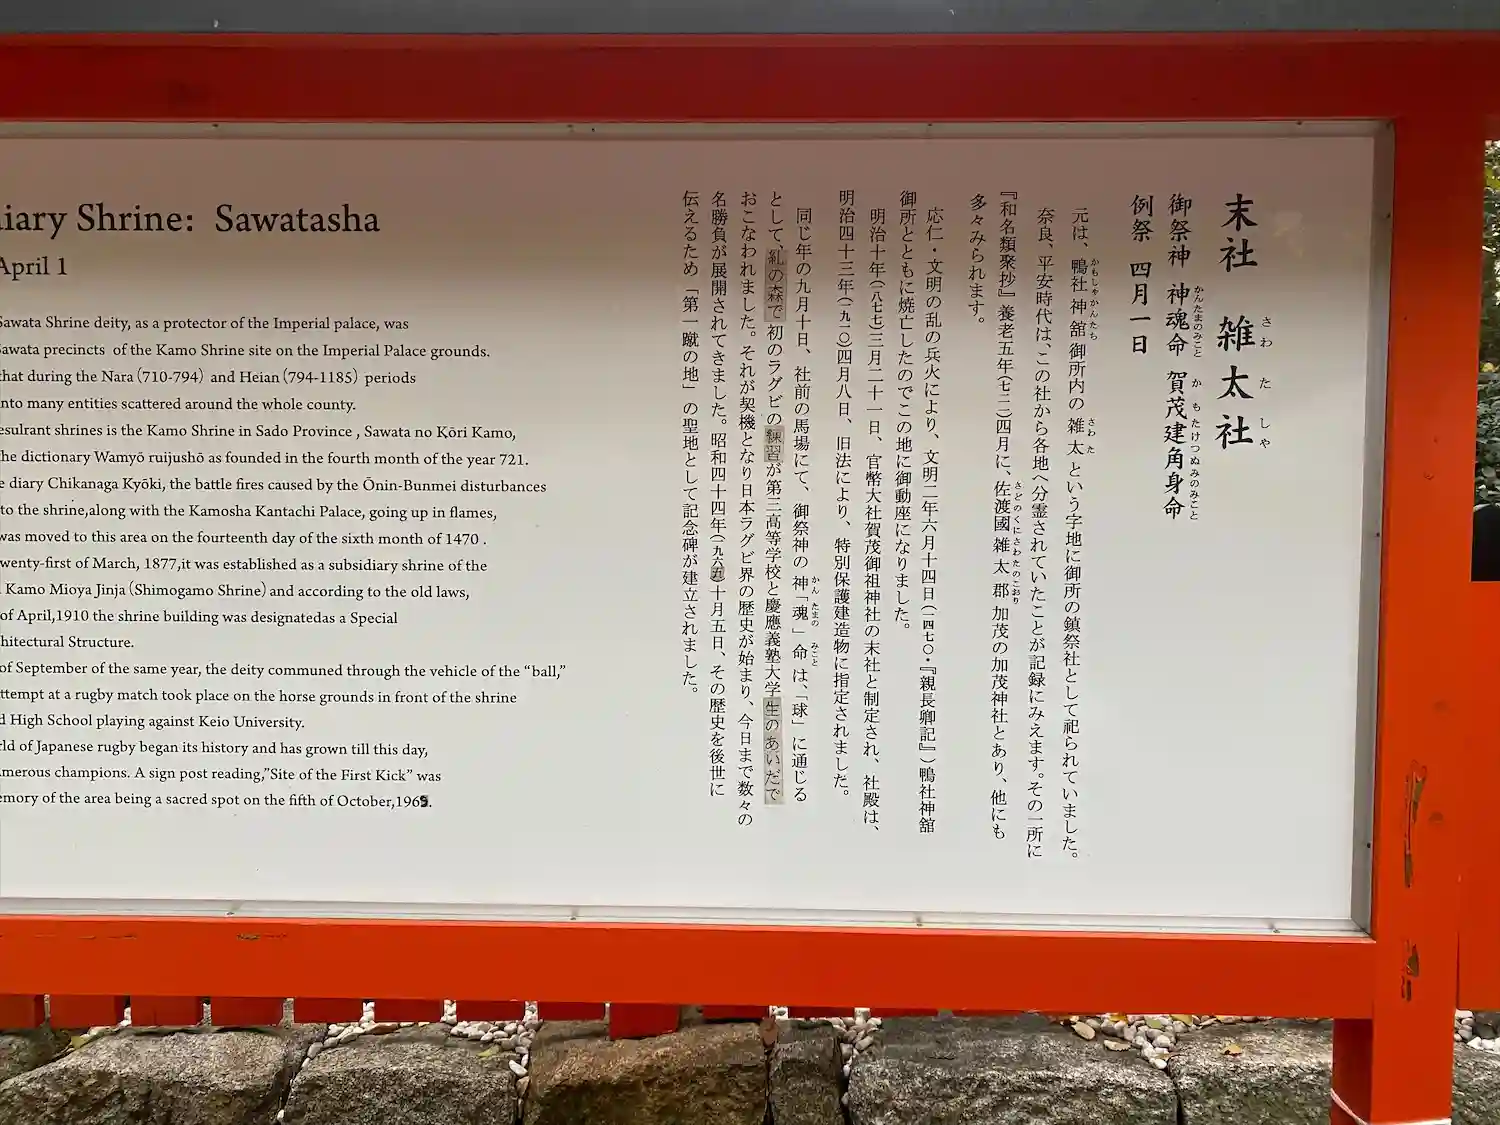 diary Shrine: Sawatasha
April 1
Sawata Shrine deity, as a protector of the Imperial palace, was
Sawata precincts of the Kamo Shrine site on the Imperial Palace grounds.
that during the Nara (710-794) and Heian (794-1185) periods
into many entities scattered around the whole county.
esulrant shrines is the Kamo Shrine in Sado Province , Sawata no Kōri Kamo,
he dictionary Wamyō ruijushō as founded in the fourth month of the year 721.
e diary Chikanaga Kyōki, the battle fires caused by the Ōnin-Bunmei disturbances
to the shrine,along with the Kamosha Kantachi Palace, going up in flames,
was moved to this area on the fourteenth day of the sixth month of 1470 .
wenty-first of March, 1877,it was established as a subsidiary shrine of the
Kamo Mioya Jinja (Shimogamo Shrine) and according to the old laws,
of April,1910 the shrine building was designatedas a Special
hitectural Structure.
of September of the same year, the deity communed through the vehicle of the “ball,”
ttempt at a rugby match took place on the horse grounds in front of the shrine
d High School playing against Keio University.
rld of Japanese rugby began its history and has grown till this day,
umerous champions. A sign post reading,”Site of the First Kick” was
emory of the area being a sacred spot on the fifth of October,1969.
末社 雑太社
さわ た しゃ
御祭神 神魂命 賀茂建角身命
かんたまのみこと かもたけつぬみのみこと
例祭 四月一日
元は、鴨社神舘御所内の雑太という字地に御所の鎮祭社として祀られていました。
かもしゃかんたち さわた
奈良、平安時代は、この社から各地へ分霊されていたことが記録にみえます。その一所に
『和名類聚抄』養老五年(七二一)四月に、佐渡國雑太郡加茂の加茂神社とあり、他にも
さどのくにさわたのこおり
多々みられます。
応仁・文明の乱の兵火により、文明二年六月十四日(一四七〇・『親長卿記』)鴨社神舘
御所とともに焼亡したのでこの地に御動座になりました。
明治十年(一八七七)三月二十一日、官幣大社賀茂御祖神社の末社と制定され、社殿は、
明治四十三年(一九一〇)四月八日、旧法により、特別保護建造物に指定されました。
同じ年の九月十日、社前の馬場にて、御祭神の神「魂」命は、「球」に通じる
かん たまの みこと
として、糺の森で初のラグビの練習が第三高等学校と慶應義塾大学生のあいだで
おこなわれました。それが契機となり日本ラグビ界の歴史が始まり、今日まで数々の
名勝負が展開されてきました。昭和四十四年(一九六九)十月五日、その歴史を後世に
伝えるため「第一蹴の地」の聖地として記念碑が建立されました。